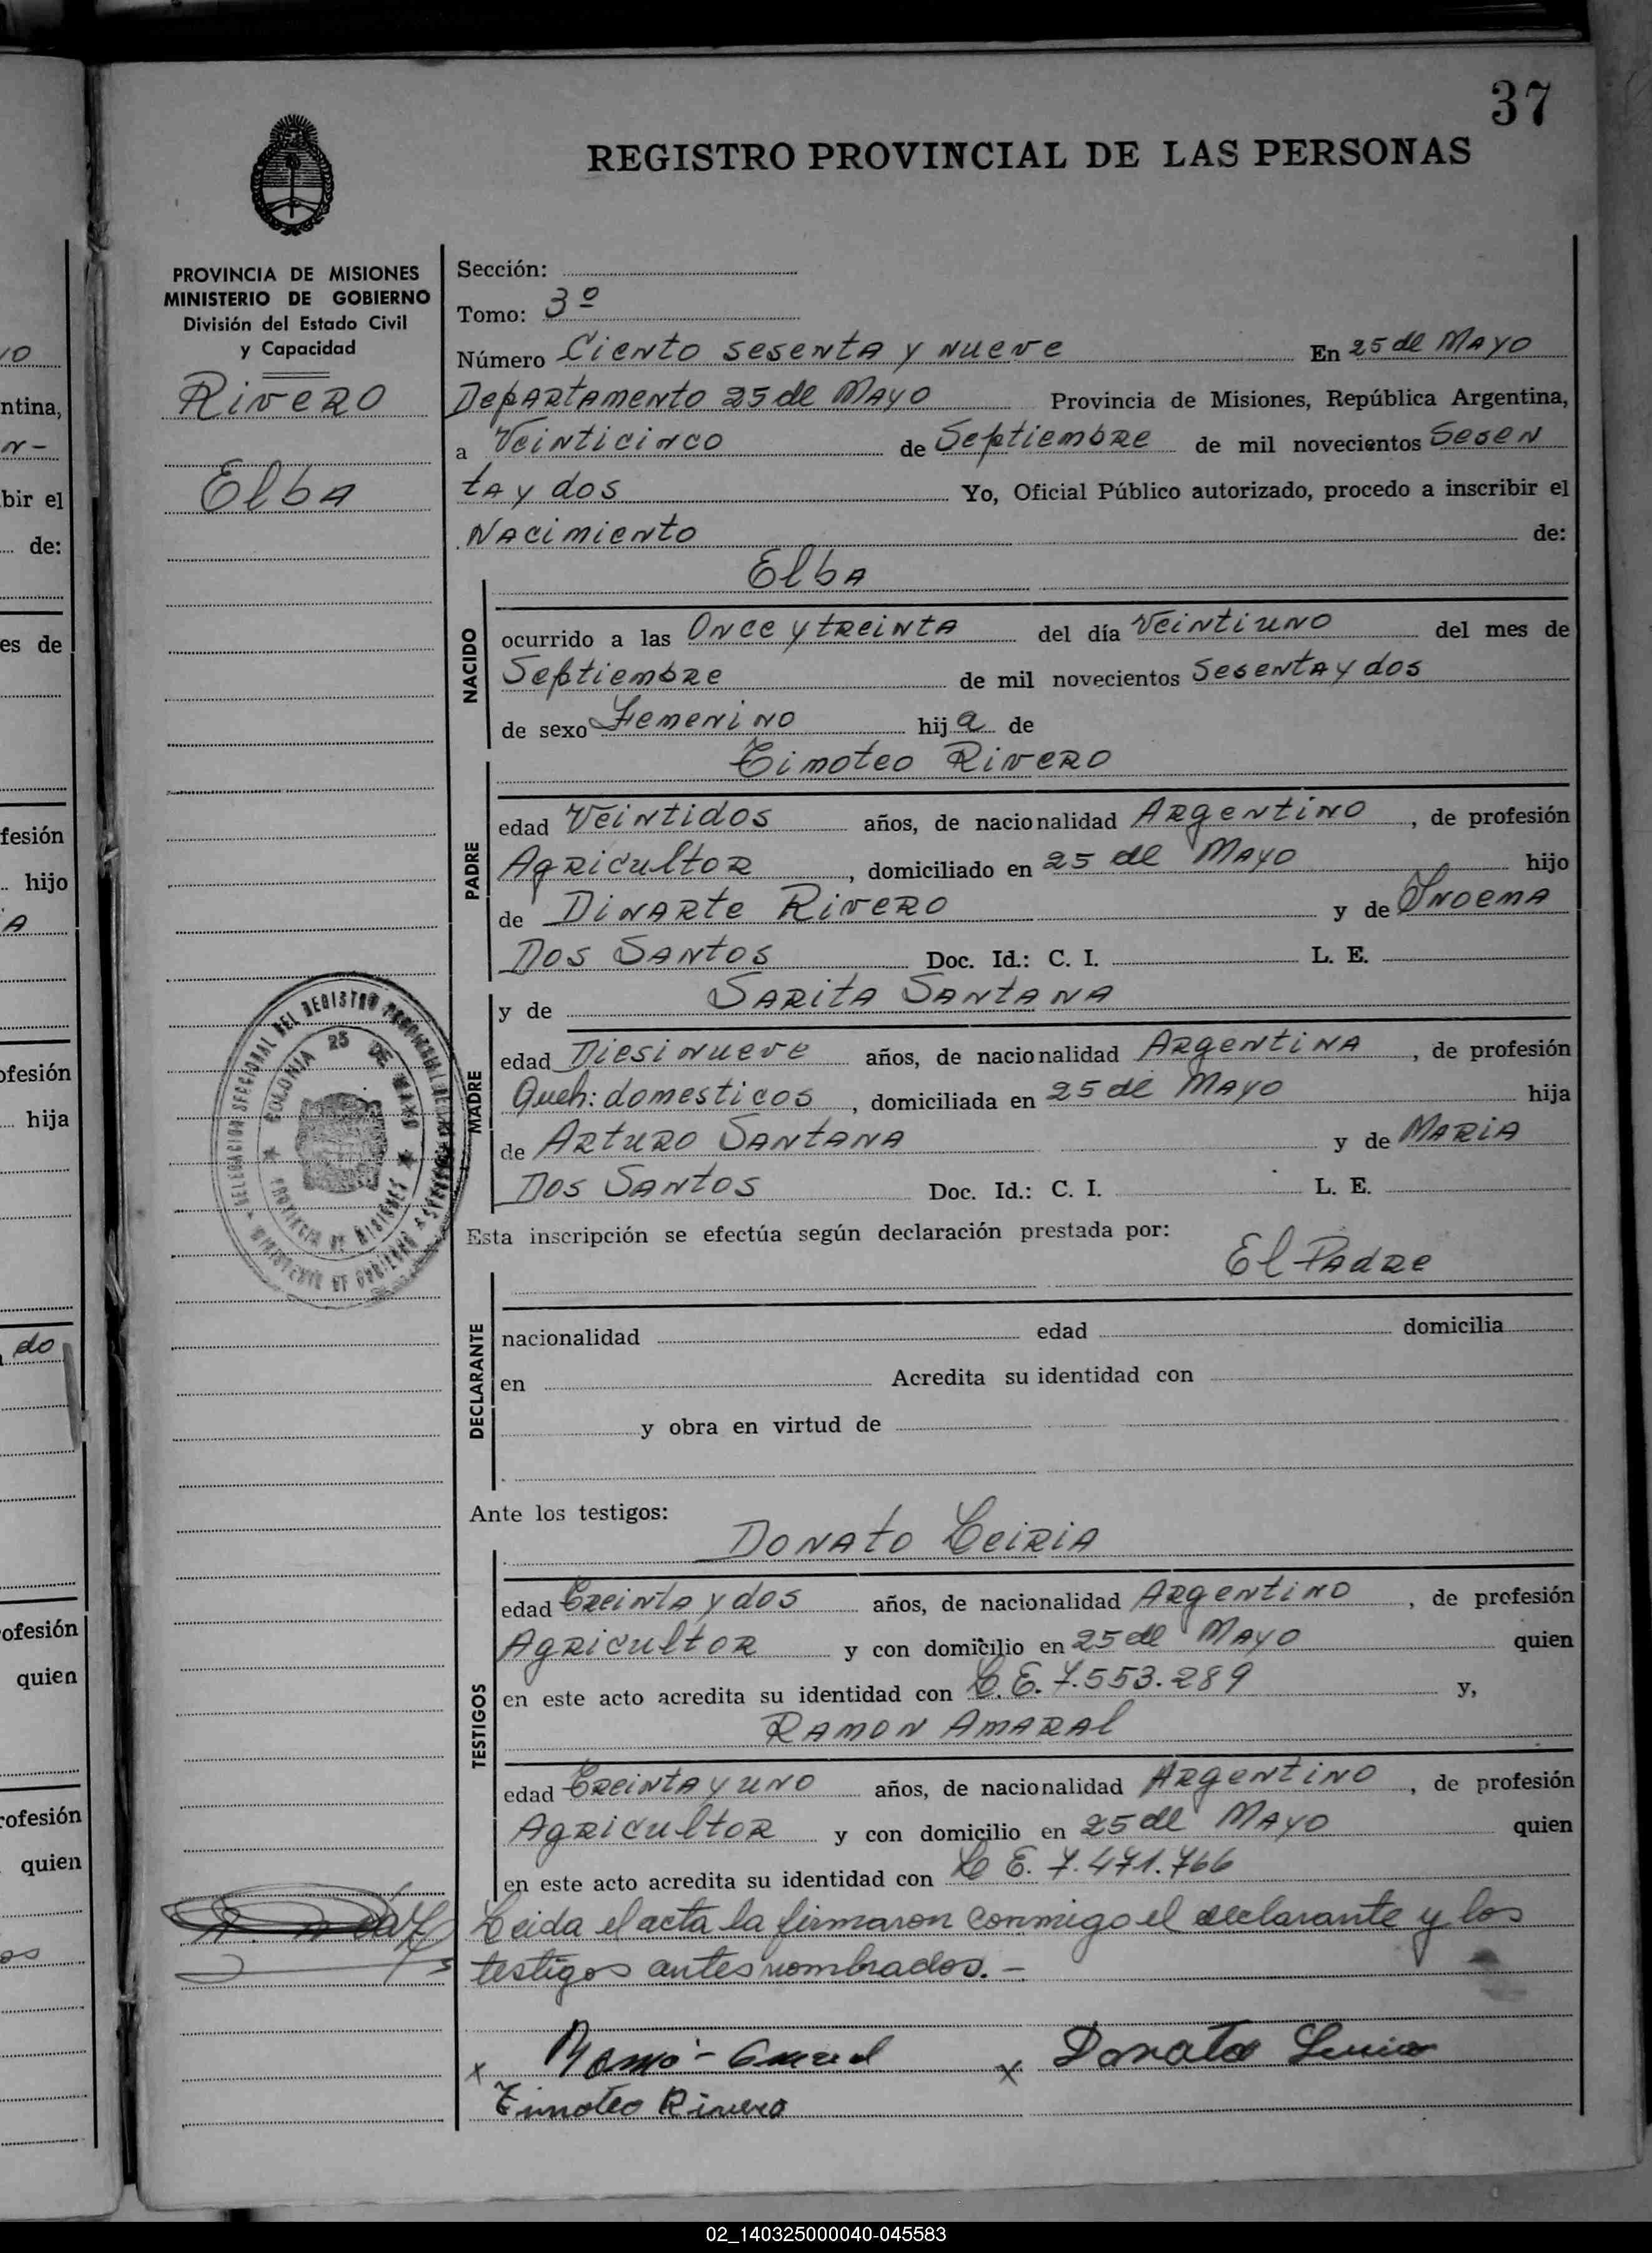 37
REGISTRO PROVINCIAL DE LAS PERSONAS
PROVINCIA DE MISIONES
MINISTERIO DE GOBIERNO
División del Estado Civil
y Capacidad
Rivero
Elba
Sección:
Tomo: 3º
Número Ciento sesenta y nueve En 25 de Mayo
Departamento 25 de Mayo Provincia de Misiones, República Argentina,
a Veinticinco de Septiembre de mil novecientos Sesen
ta y dos Yo, Oficial Público autorizado, procedo a inscribir el
Nacimiento de:
Elba
NACIDO
ocurrido a las Once y treinta del día Veintiuno del mes de
Septiembre de mil novecientos Sesenta y dos
de sexo Femenino hija de
Timoteo Rivero
PADRE
edad Veintidos años, de nacionalidad Argentino, de profesión
Agricultor, domiciliado en 25 de Mayo hijo
de Dinarte Rivero y de Inoema
Dos Santos Doc. Id.: C. I. L. E.
y de Sarita Santana
MADRE
edad Diesinueve años, de nacionalidad Argentina, de profesión
Queh: domesticos, domiciliada en 25 de Mayo hija
de Arturo Santana y de Maria
Dos Santos Doc. Id.: C. I. L. E.
COLONIA 25 DE MAYO
PROVINCIA DE MISIONES
Esta inscripción se efectúa según declaración prestada por:
El Padre
DECLARANTE
nacionalidad edad domicilia
en Acredita su identidad con
y obra en virtud de
Ante los testigos:
Donato Leiria
TESTIGOS
edad Treinta y dos años, de nacionalidad Argentino, de profesión
Agricultor y con domicilio en 25 de Mayo quien
en este acto acredita su identidad con L. E. 7.553.289 y,
Ramon Amaral
edad Treinta y uno años, de nacionalidad Argentino, de profesión
Agricultor y con domicilio en 25 de Mayo quien
en este acto acredita su identidad con L E. 7.471.766
Leida el acta la firmaron conmigo el declarante y los
testigos antes nombrados.-
Donato
Timoteo Rivero
02_140325000040-045583